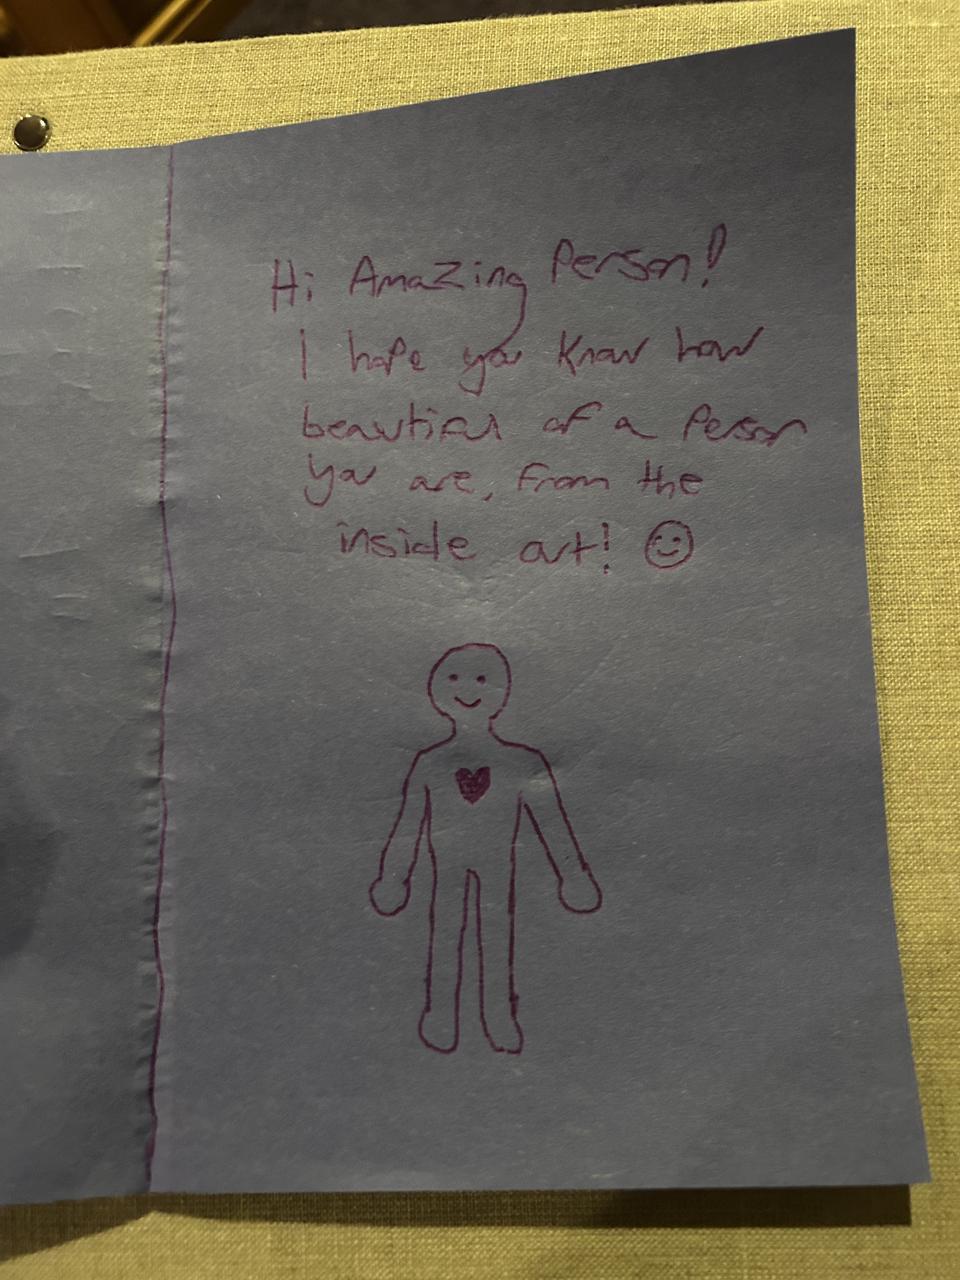 Hi Amazing Person!
I hope you know how
beautiful of a person
you are, from the
inside out! ☺